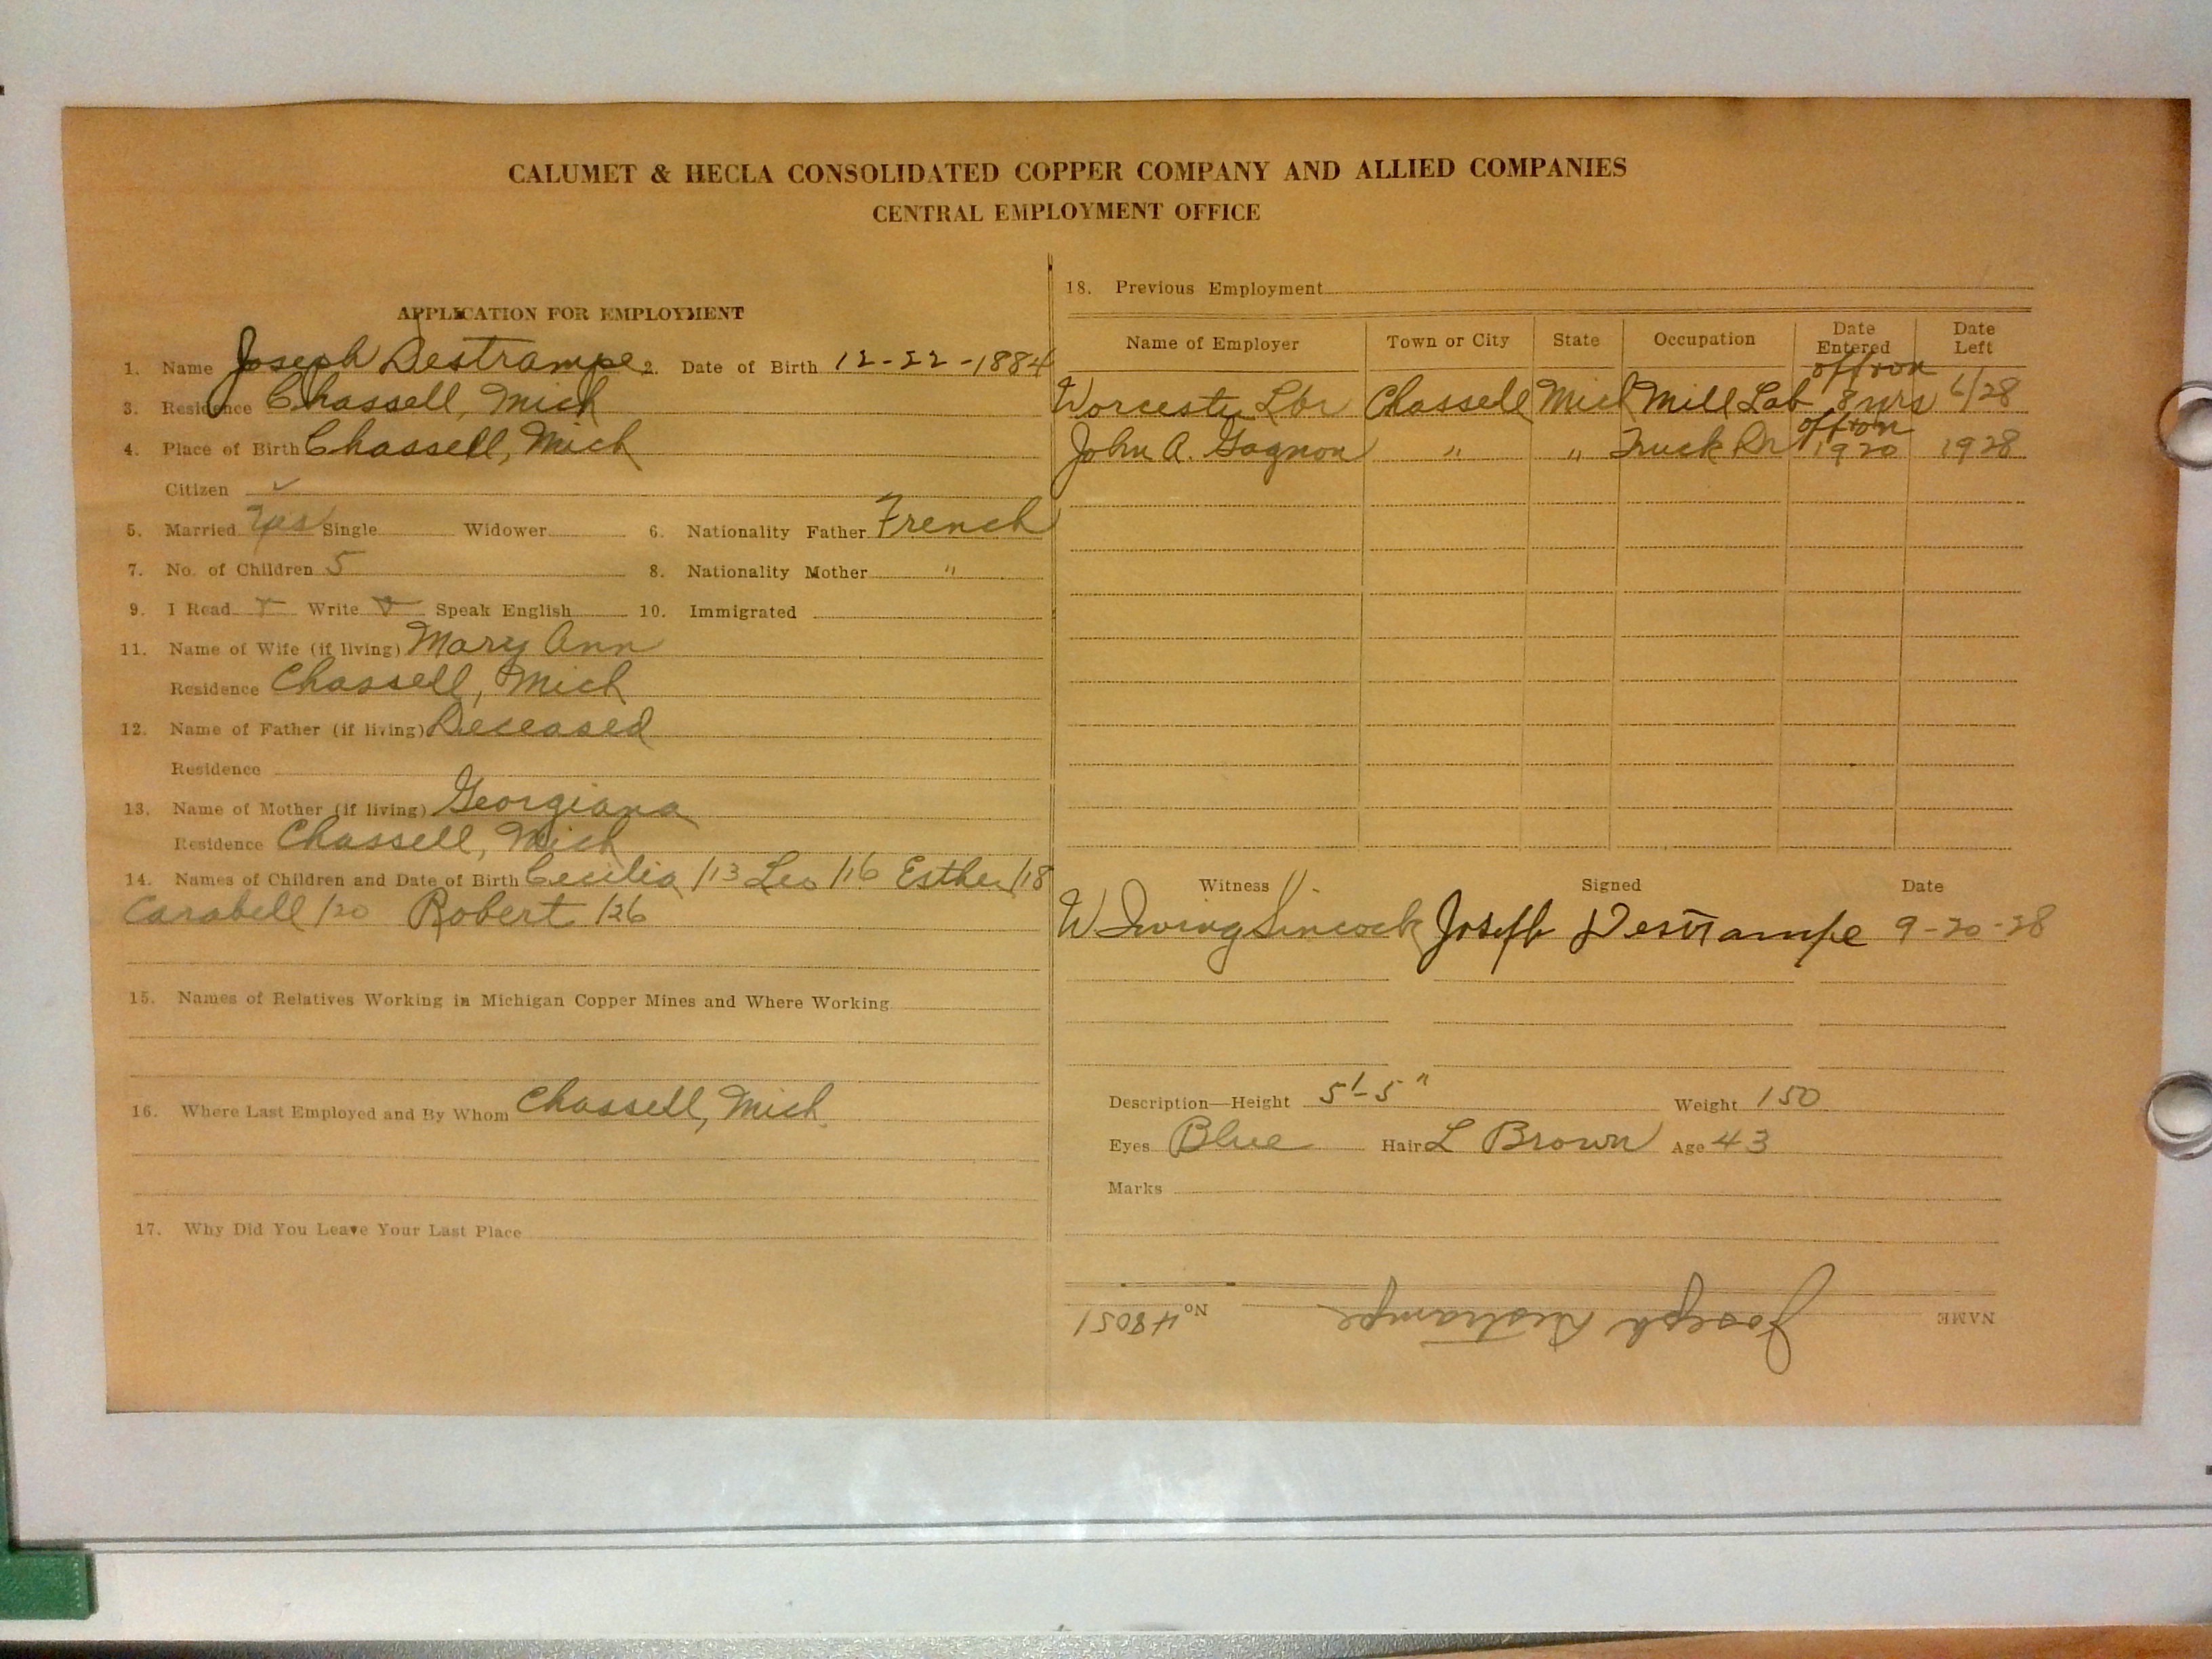 CALUMET & HECLA CONSOLIDATED COPPER COMPANY AND ALLIED COMPANIES
CENTRAL EMPLOYMENT OFFICE
APPLICATION FOR EMPLOYMENT
1. Name Joseph Destrampe 2. Date of Birth 12-22-1884
3. Residence Chassell, Mich
4. Place of Birth Chassell, Mich
Citizen ✓
5. Married Yes Single Widower 6. Nationality Father French
7. No. of Children 5 8. Nationality Mother "
9. I Read Write Speak English 10. Immigrated
11. Name of Wife (if living) Mary Ann
Residence Chassell, Mich
12. Name of Father (if living) Deceased
Residence
13. Name of Mother (if living) Georgiana
Residence Chassell, Mich
14. Names of Children and Date of Birth Cecilia /13 Leo /16 Esther /18
Carabell /20 Robert /26
15. Names of Relatives Working in Michigan Copper Mines and Where Working
16. Where Last Employed and By Whom Chassell, Mich.
17. Why Did You Leave Your Last Place
18. Previous Employment
Name of Employer Town or City State Occupation Date Entered Date Left
off + on
Worcester Lbr Chassell Mich Mill Lab 8 yrs 6/28
off + on
John A. Gagnon " " Truck Dr 1920 1928
Witness Signed Date
W Irving Sincock Joseph Destrampe 9-20-28
Description—Height 5'-5" Weight 150
Eyes Blue Hair L Brown Age 43
Marks
NAME Joseph Destrampe No 48051